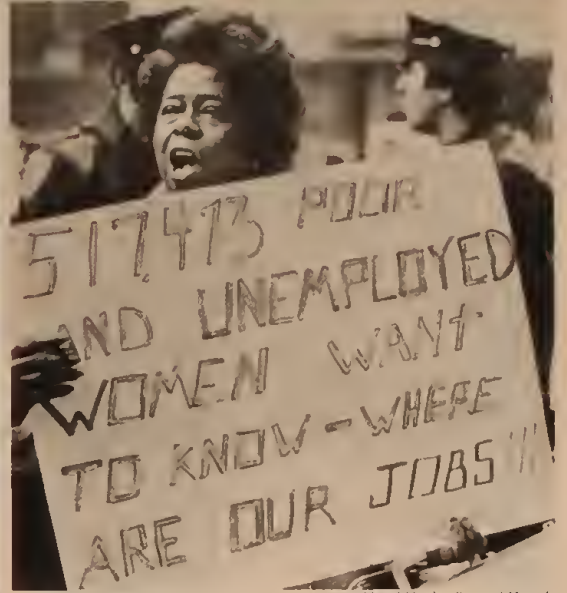 517,473 POOR
AND UNEMPLOYED
WOMEN WANT
TO KNOW - WHERE
ARE OUR JOBS !!!